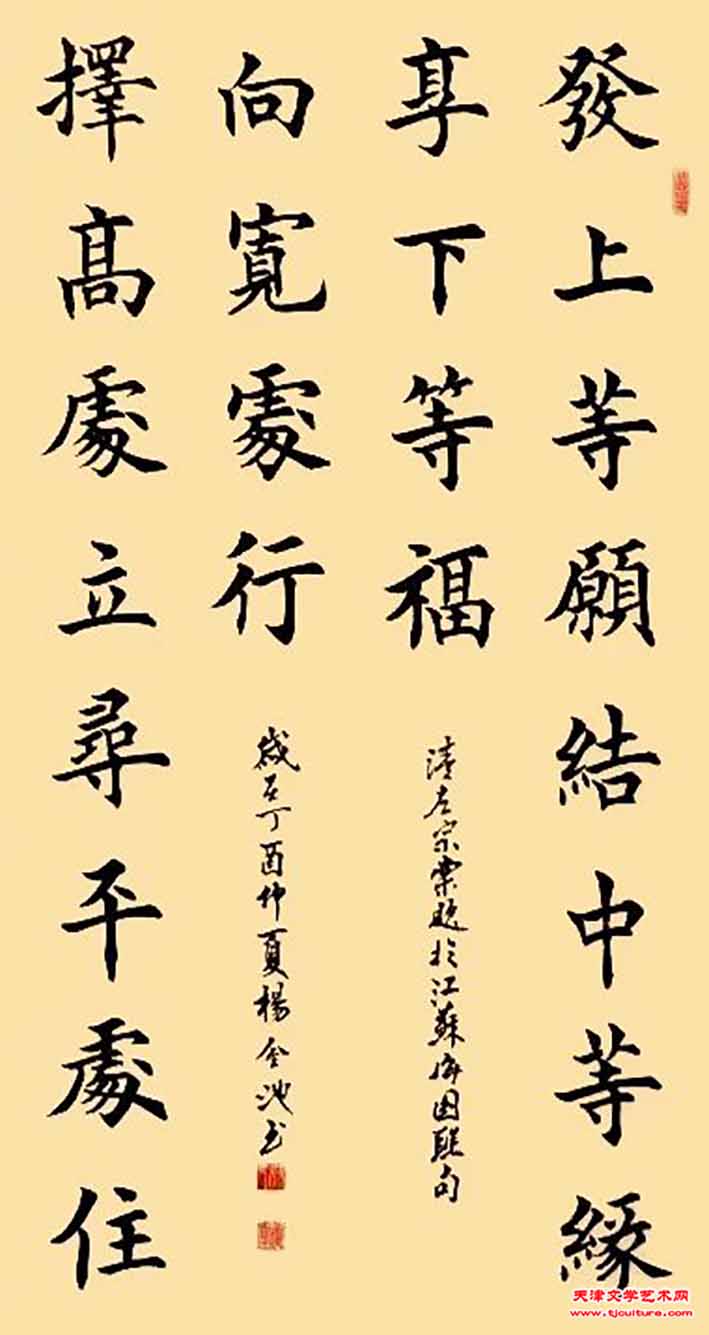 發上等願結中等緣
享下等福
清左宗棠題於江蘇園聯句
擇高處立尋平處住
向寬處行
歲在丁酉仲夏楊金池書
天津文学艺术网
www.tjculture.com